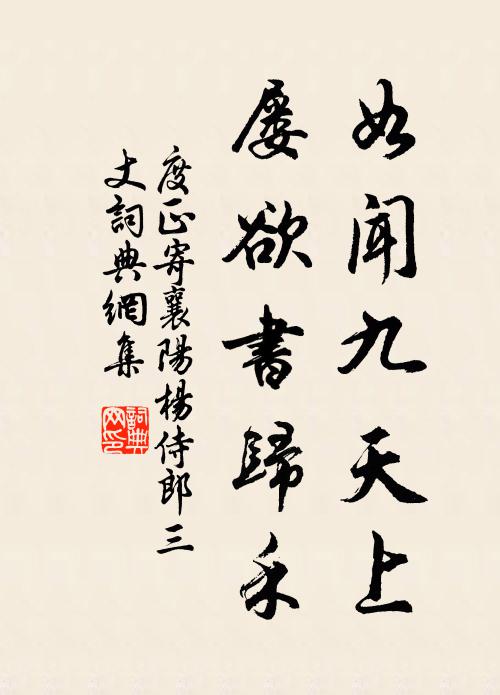 如聞九天上
屡欲書歸禾
度正寄襄陽楊侍郎三
丈詞典網集
詞典網印